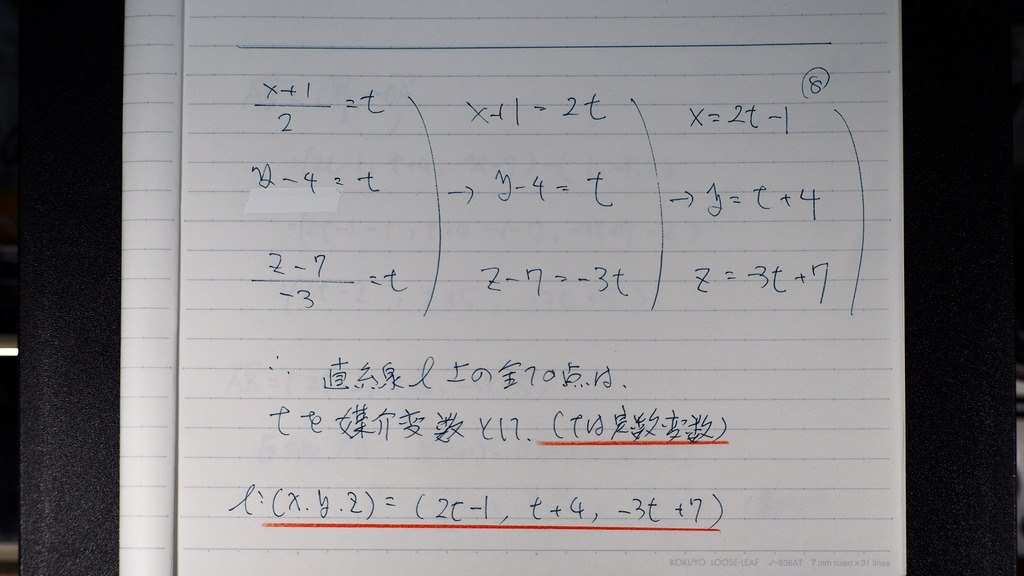 ⑧
x+1/2 = t x+1 = 2t x = 2t-1
y-4 = t → y-4 = t → y = t+4
z-7/-3 = t z-7 = -3t z = -3t+7
∴ 直線l上の全ての点は、
tを媒介変数として、(tは実数変数)
l:(x.y.z) = (2t-1, t+4, -3t+7)
KOKUYO LOOSE-LEAF ノ-836AT 7 mm ruled×31 lines